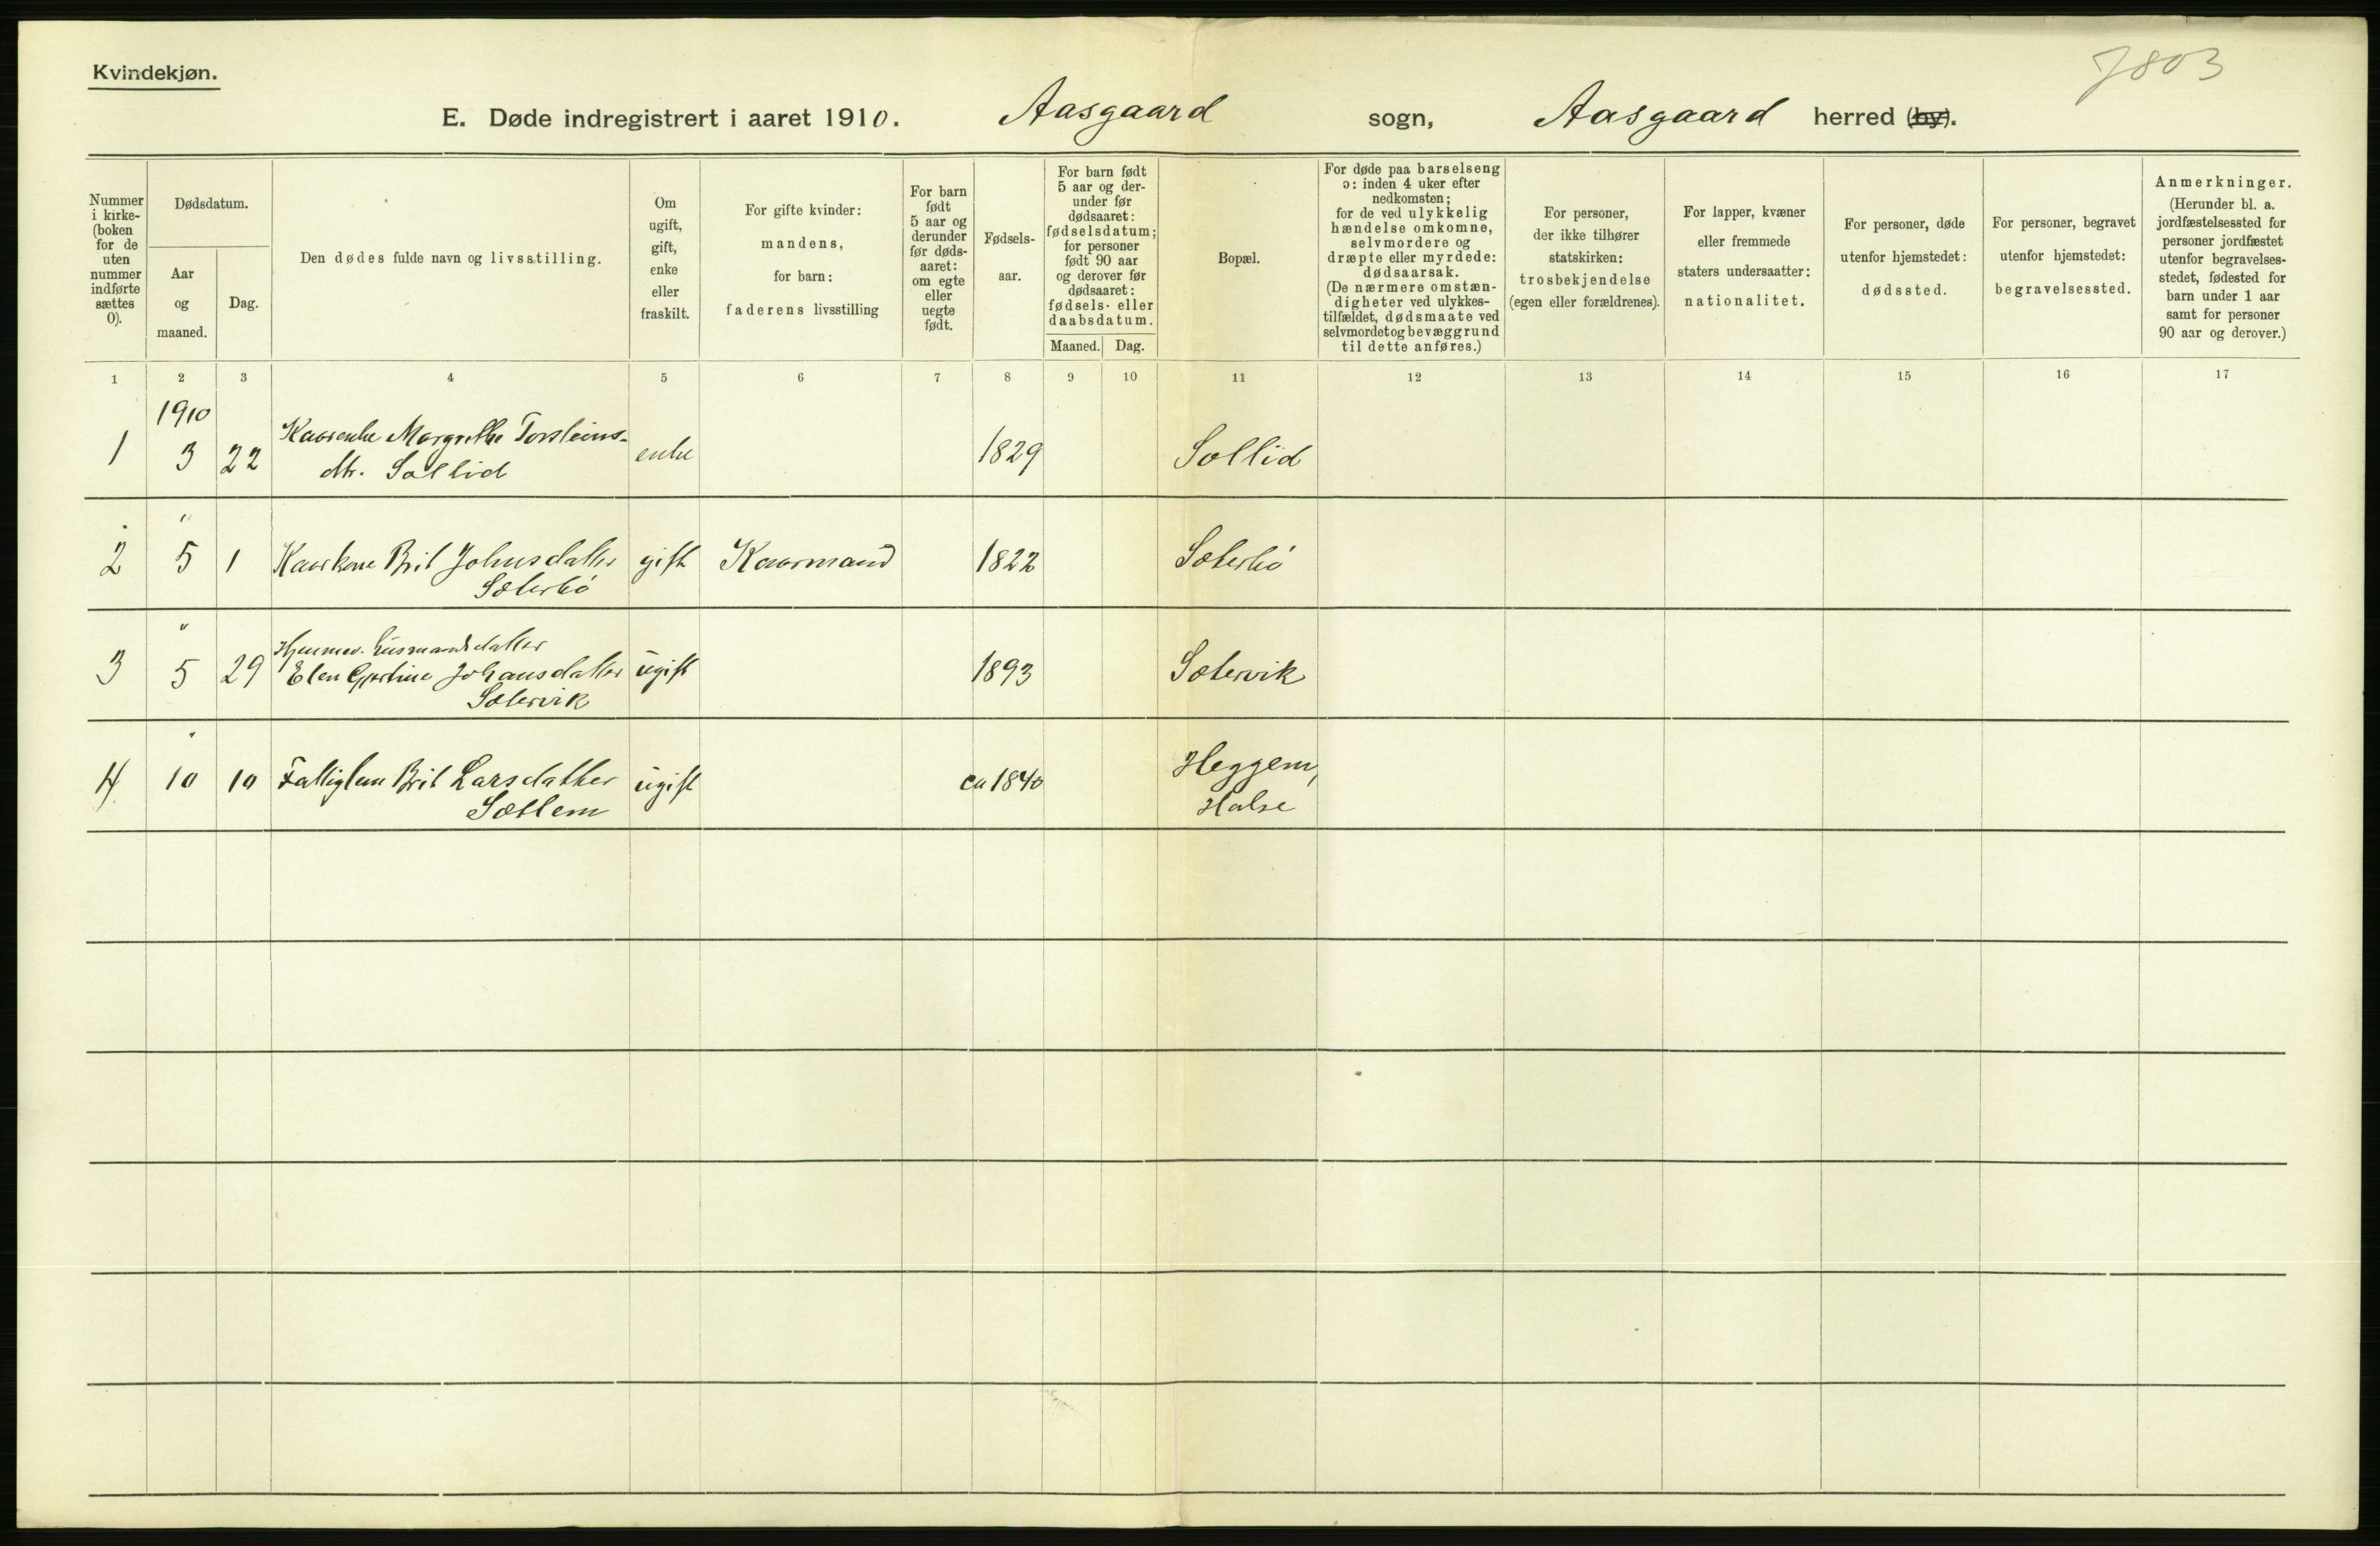 Kvindekjøn.
7803
E. Døde indregistrert i aaret 1910. Aasgaard sogn, Aasgaard herred (by).
Nummer
i kirke-
(boken
for de
uten
nummer
indførte
sættes
0).
Dødsdatum.
Aar
og
maaned.
Dag.
Den dødes fulde navn og livsstilling.
Om
ugift,
gift,
enke
eller
fraskilt.
For gifte kvinder:
mandens,
for barn:
faderens livsstilling
For barn
født
5 aar og
derunder
før døds-
aaret:
om egte
eller
uegte
født.
Fødsels-
aar.
For barn født
5 aar og der-
under før
dødsaaret:
fødselsdatum;
for personer
født 90 aar
og derover før
dødsaaret:
fødsels- eller
daabsdatum.
Maaned. Dag.
Bopæl.
For døde paa barselseng
ɔ: inden 4 uker efter
nedkomsten;
for de ved ulykkelig
hændelse omkomne,
selvmordere og
dræpte eller myrdede:
dødsaarsak.
(De nærmere omstæn-
digheter ved ulykkes-
tilfældet, dødsmaate ved
selvmordet og bevæggrund
til dette anføres.)
For personer,
der ikke tilhører
statskirken:
trosbekjendelse
(egen eller forældrenes).
For lapper, kvæner
eller fremmede
staters undersaatter:
nationalitet.
For personer, døde
utenfor hjemstedet:
dødssted.
For personer, begravet
utenfor hjemstedet:
begravelsessted.
Anmerkninger.
(Herunder bl. a.
jordfæstelsessted for
personer jordfæstet
utenfor begravelses-
stedet, fødested for
barn under 1 aar
samt for personer
90 aar og derover.)
1 2 3 4 5 6 7 8 9 10 11 12 13 14 15 16 17
1910
1 3 22 Kaarenke Margrethe Torsteins- enke 1829 Sollid
dtr. Sollid
"
2 5 1 Kaarkone Brit Johnsdatter gift Kaarmand 1822 Sæterbø
Sæterbø
"
Hjemmev. husmandsdatter
3 5 29 Elen Gjertine Johansdatter ugift 1893 Sætervik
Sætervik
"
4 10 10 Fattiglem Brit Larsdatter ugift ca 1840 Heggem,
Sætlem Halse